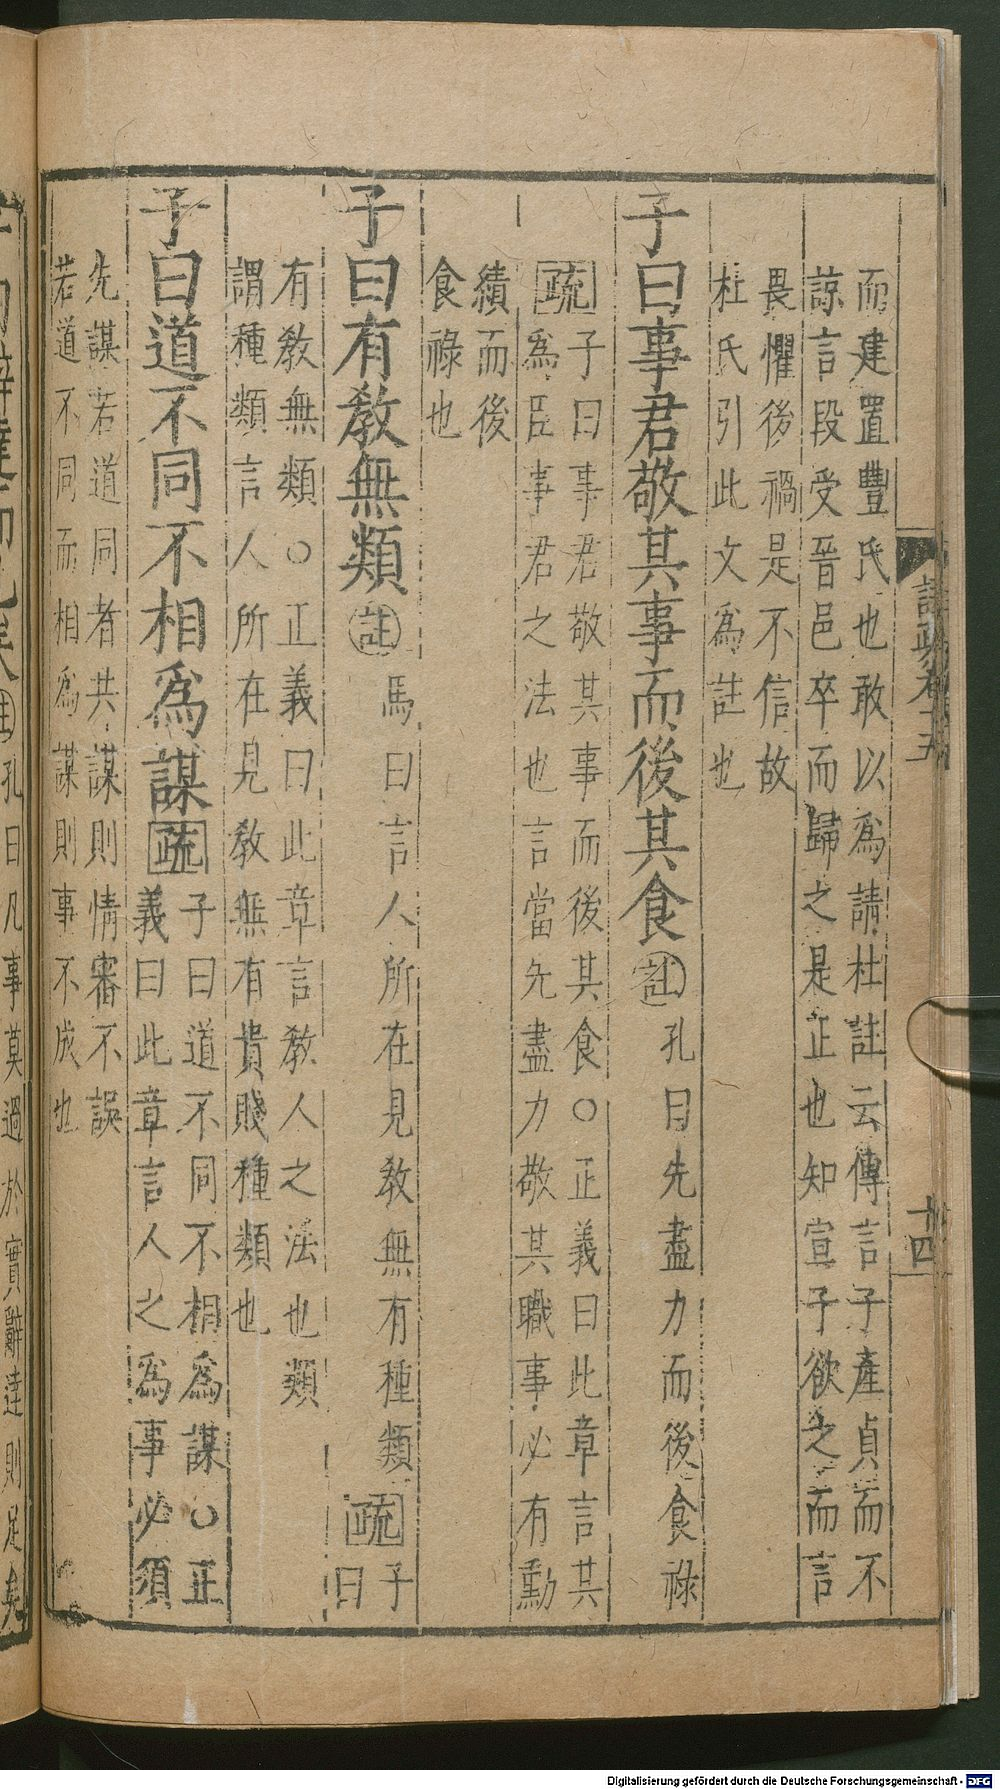 而建置豐氏也敢以爲請杜註云傳言子產貞而不
諒言段受晉邑卒而歸之是正也知宣子欲之而言
畏懼後禍是不信故
杜氏引此文爲註也
子曰事君敬其事而後其食註孔曰先盡力而後食祿
疏子曰事君敬其事而後其食○正義曰此章言其
爲臣事君之法也言當先盡力敬其職事必有勳
績而後
食祿也
子曰有敎無類註馬曰言人所在見敎無有種類疏子曰
有敎無類○正義曰此章言敎人之法也類
謂種類言人所在見敎無有貴賤種類也
子曰道不同不相爲謀疏子曰道不同不相爲謀○正
義曰此章言人之爲事必須
先謀若道同者共謀則情審不誤
若道不同而相爲謀則事不成也
卷十五
十四
註孔曰凡事莫過於實辭達則足矣
Digitalisierung gefördert durch die Deutsche Forschungsgemeinschaft - DFG